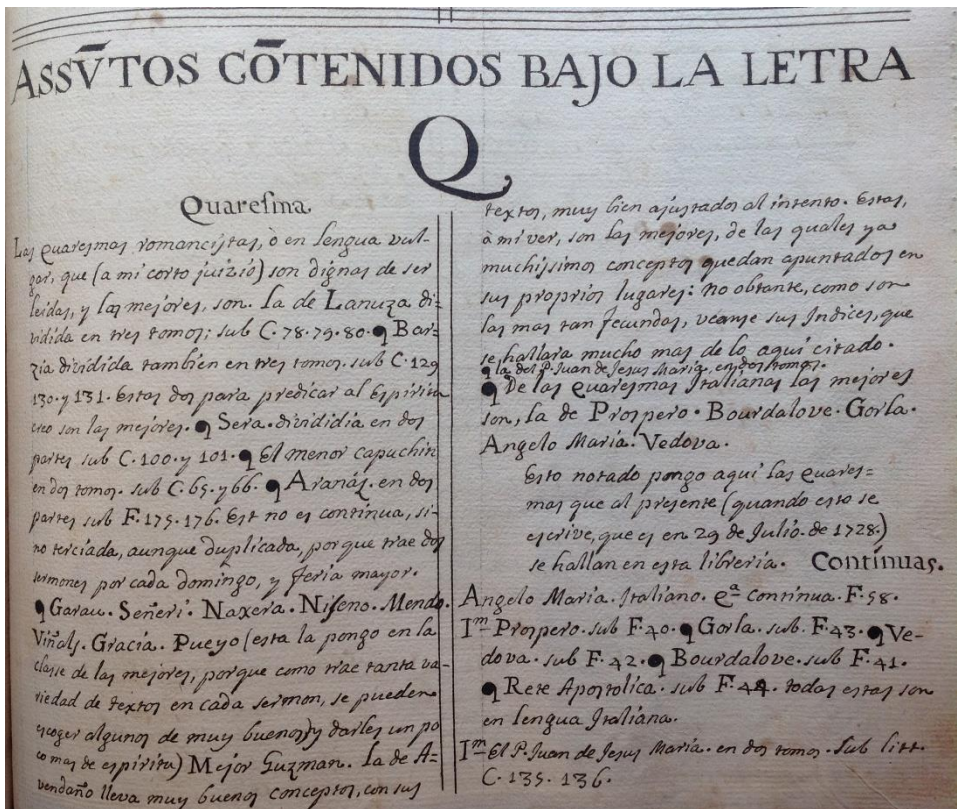 ASSṼTOS CÕTENIDOS BAJO LA LETRA
Q
Quaresma.
Las quaresmas romancistas, ò en lengua vul-
gar, que (a mi corto juizio) son dignas de ser
leidas, y las mejores, son. La de Lanuza di-
vidida en tres tomos; sub C. 78. 79. 80. ¶ Bar-
zia dividida tambien en tres tomos. sub C. 129
130. y 131. Estas dos para predicar al Espiritu
creo son las mejores. ¶ Sera. dividídia en dos
partes sub C. 100. y 101. ¶ El menor capuchin
en dos tomos. sub C. 65. y 66. ¶ Aranáz. en dos
partes sub F. 175. 176. Est no es continua, si-
no terciada, aunque duplicada, porque trae dos
sermones por cada domingo, y feria mayor.
¶ Garau. Señeri. Naxera. Niseno. Mendo.
Viñals. Gracia. Pueyo (esta la pongo en la
classe de las mejores, porque como trae tanta va-
riedad de textos en cada sermon, se pueden
escoger algunos de muy buenos) y darles un po
co mas de espiritu) Mejor Guzman. La de A-
vendaño lleva muy buenos conceptos, con sus
textos, muy bien ajustados al intento. Estas,
à mi ver, son las mejores, de las quales ya
muchissimos conceptos quedan apuntados en
sus proprios lugares: no obtante, como son
las mas tan fecundas, veanse sus Indices, que
se hallara mucho mas de lo aqui citado.
¶ la del P. Juan de Jesus Maria, en dos tomos.
¶ De las quaresmas Italianas las mejores
son, la de Prospero. Bourdalove. Gorla.
Angelo Maria. Vedova.
Esto notado pongo aqui las quares=
mas que al presente (quando esto se
escrive, que es en 29 de Julio. de 1728.)
se hallan en esta libreria. Contínuas.
Angelo Maria. Italiano. Qª continua. F. 58.
Iᵐ Prospero. sub F. 40. ¶ Gorla. sub. F. 43. ¶ Ve-
dova. sub F. 42. ¶ Bourdalove. sub F. 41.
¶ Rete Apostolica. sub F. 44. todas estas son
en lengua Italiana.
Iᵐ El P. Juan de Jesus Maria. en dos tomos. Sub litt.
C. 135. 136.